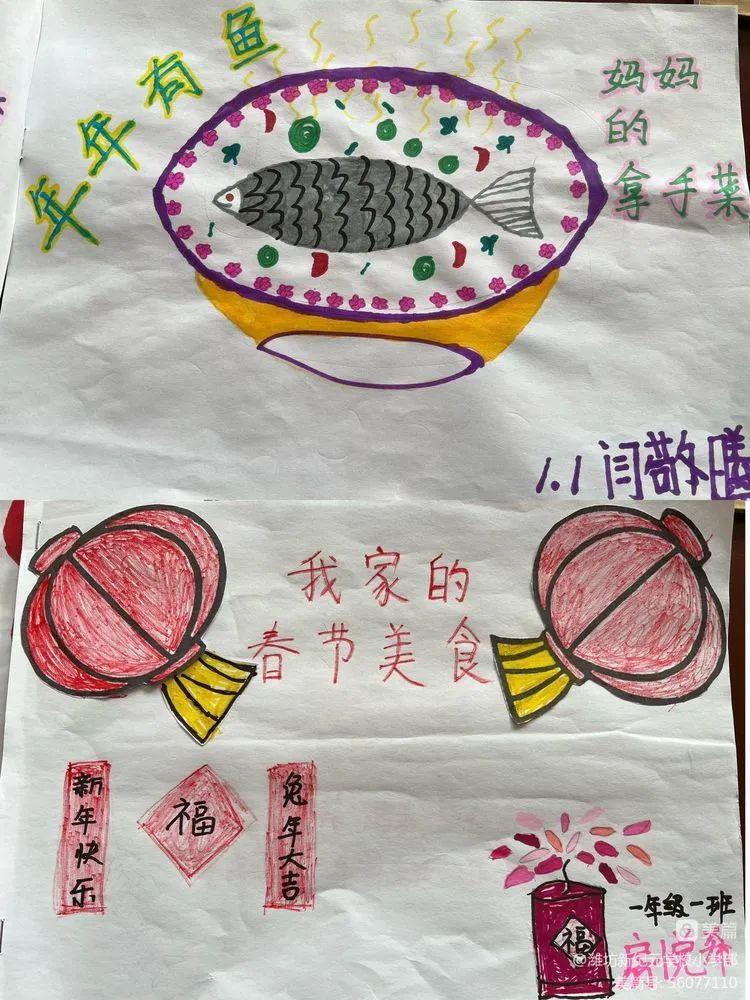 年年有鱼
妈妈
的
拿手菜
1.1 闫敬
我家的
春节美食
新年快乐
福
兔年大吉
福
一年级一班
美篇
@潍坊新纪元学校小学部
美篇号: 56077110